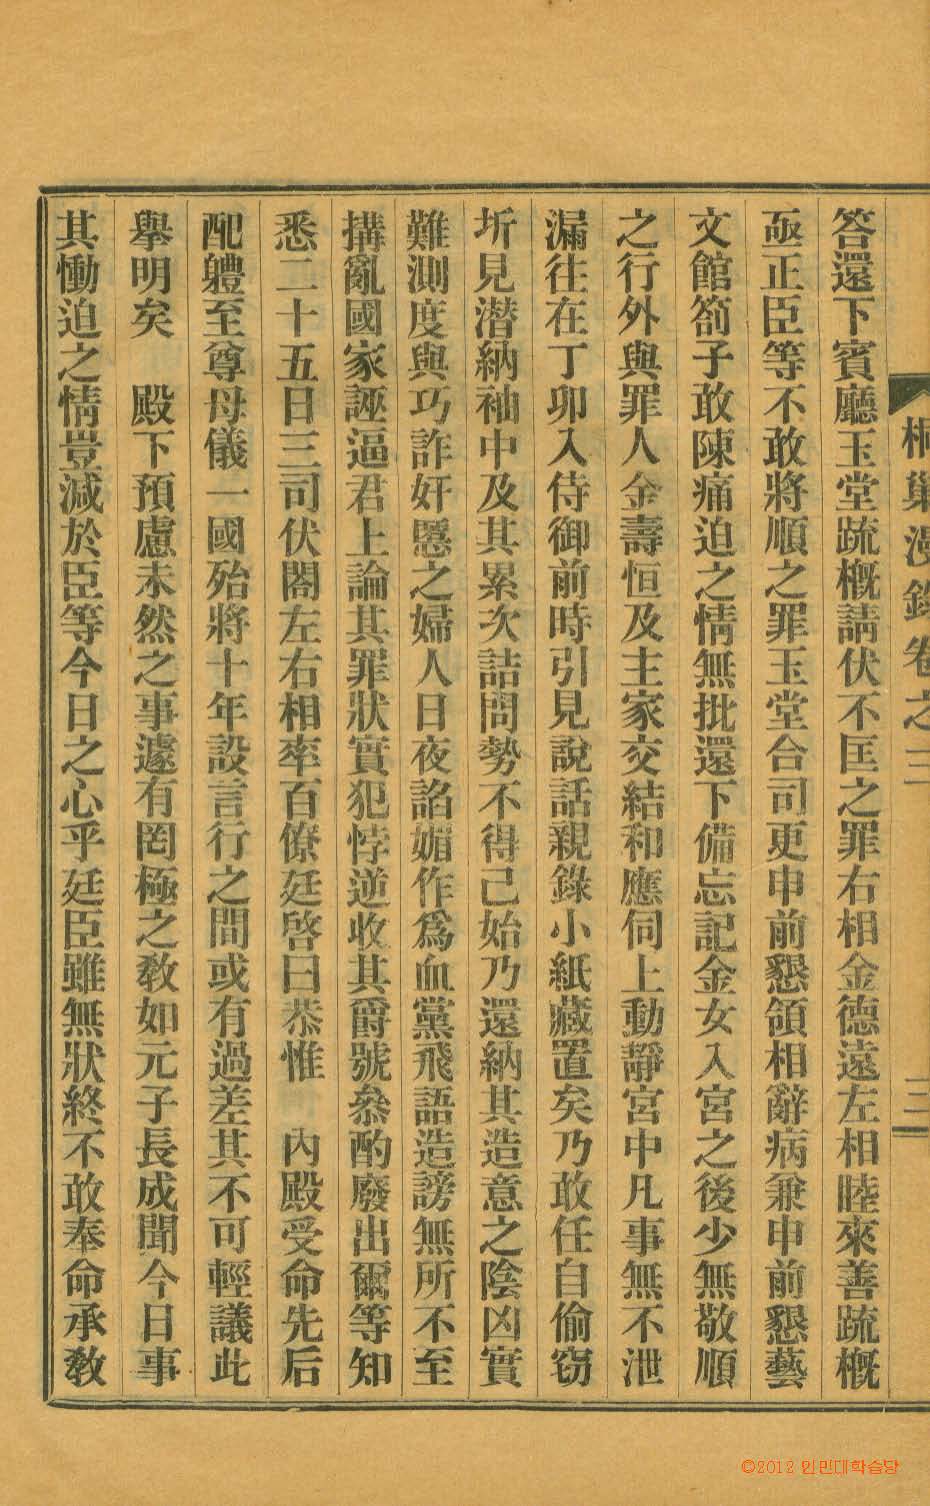 桐巢漫錄卷之三
三
答還下賓廳玉堂疏槪請伏不匡之罪右相金德遠左相睦來善疏槪
亟正臣等不敢將順之罪玉堂合司更申前懇領相辭病兼申前懇藝
文館箚子敢陳痛迫之情無批還下備忘記金女入宮之後少無敬順
之行外與罪人金壽恒及主家交結和應伺上動靜宮中凡事無不泄
漏往在丁卯入侍御前時引見說話親錄小紙藏置矣乃敢任自偷窃
圻見潜納袖中及其累次詰問勢不得己始乃還納其造意之陰凶實
難測度與巧詐奸慝之婦人日夜謟媚作爲血黨飛語造謗無所不至
搆亂國家誣逼君上論其罪狀實犯悖逆收其爵號叅酌廢出爾等知
悉二十五日三司伏閤左右相率百僚廷啓曰恭惟　內殿受命先后
配軆至尊母儀一國殆將十年設言行之間或有過差其不可輕議此
擧明矣　殿下預慮未然之事遽有罔極之敎如元子長成聞今日事
其慟迫之情豈减於臣等今日之心乎廷臣雖無狀終不敢奉命承敎
©2012 인민대학습당